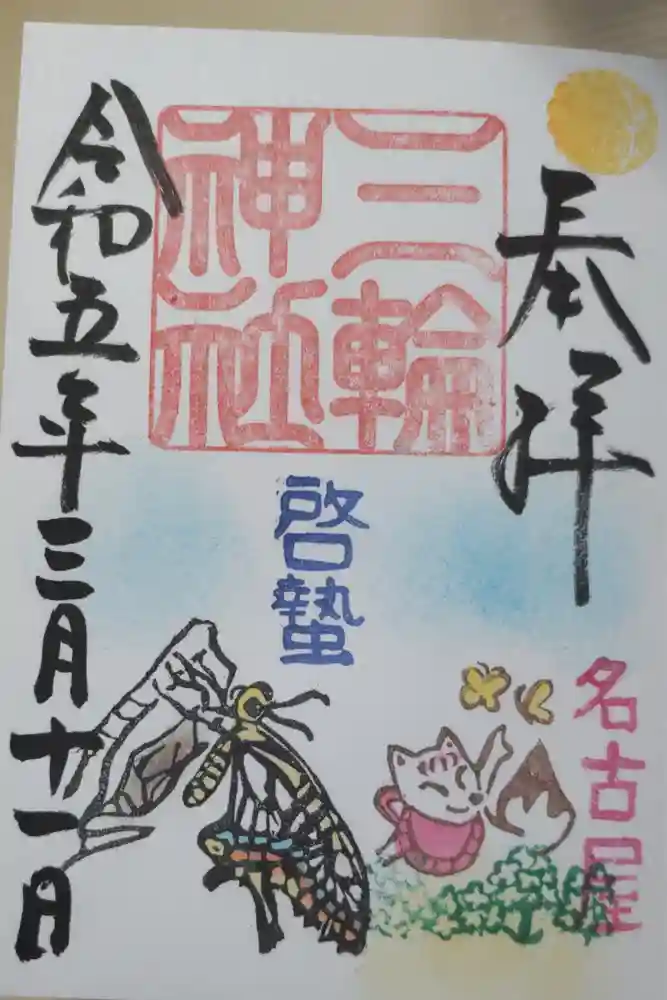 奉拝
三輪
神社
啓蟄
名古屋
令和五年三月十一月